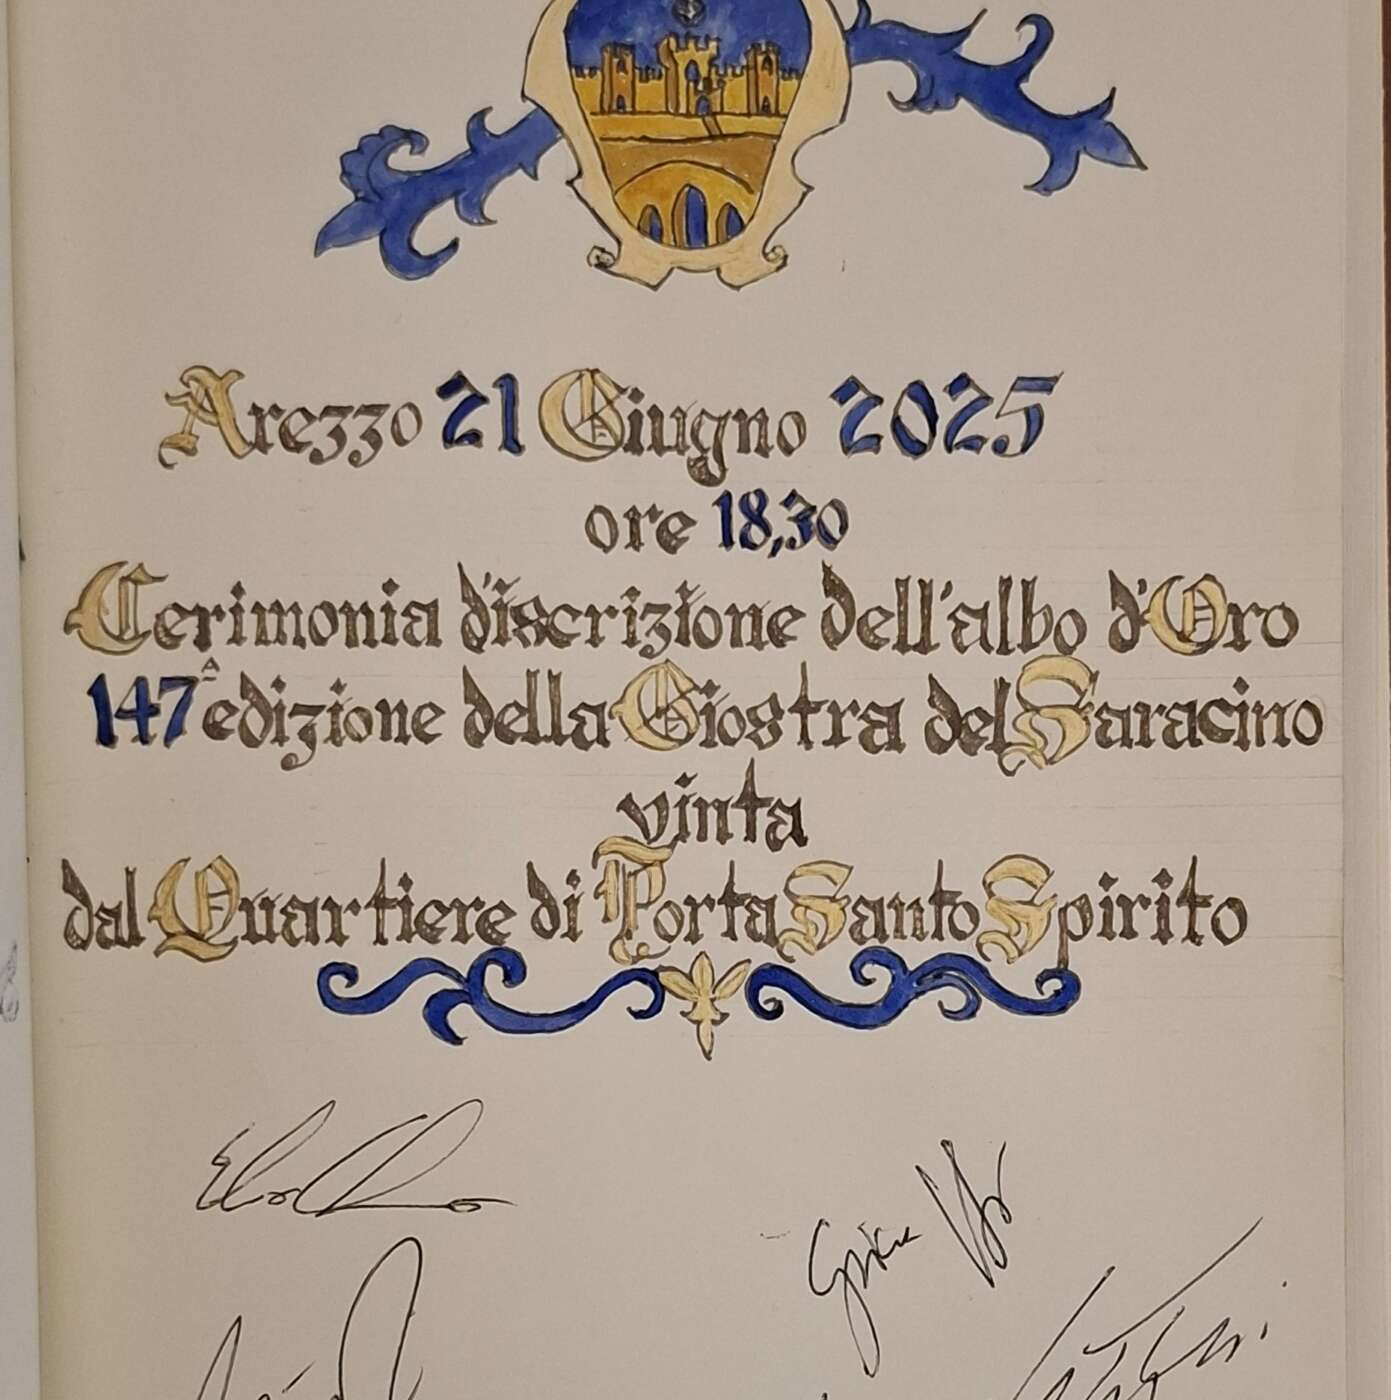 Arezzo 21 Giugno 2025
ore 18,30
Cerimonia d'iscrizione dell'albo d'Oro
147ᴬ edizione della Giostra del Saracino
vinta
dal Quartiere di Porta Santo Spirito